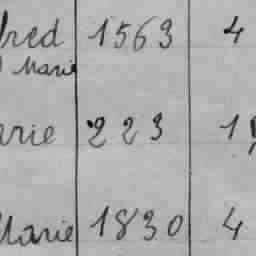 fred 1563 4
Marie
arie 223 1
Marie 1830 4